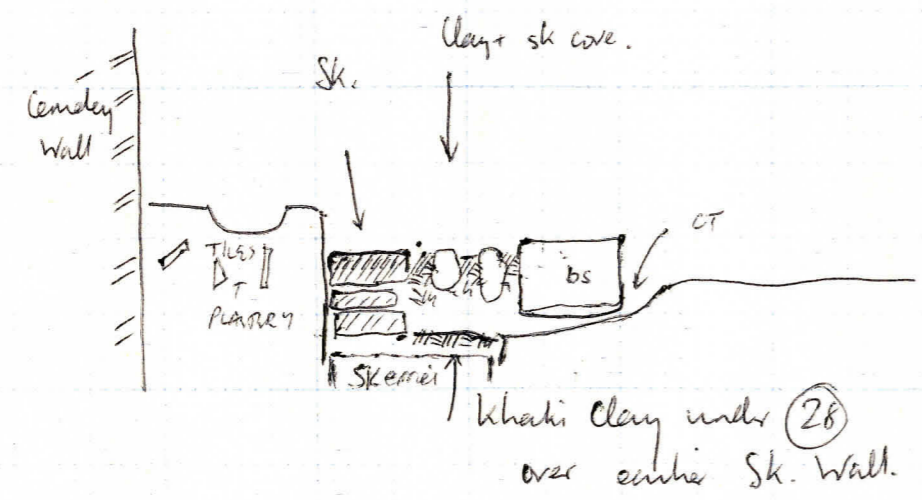 Clay + sk core.
Sk.
Cemetery
Wall
CT
TILES
bs
T
Skerries
Khaki Clay under 28
over earlier Sk. Wall.